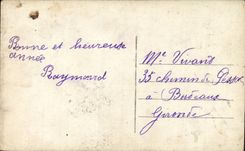 Bonne et heureuse
année
Raymond
Mr Vivant
35 chemin de
à
Gironde